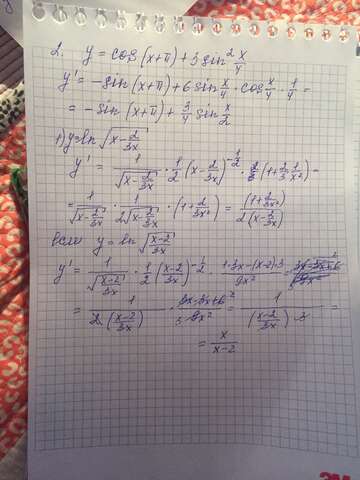 2. y = cos(x+π) + 3 sin² x/4
y' = -sin(x+π) + 6 sin x/4 · cos x/4 · 1/4 =
= -sin(x+π) + 3/4 sin x/2
1) y = ln √(x - 2/3x)
y' = 1/√(x - 2/3x) · 1/2 (x - 2/3x)^(-1/2) · (1 + 2/3 · 1/x²) =
= 1/√(x - 2/3x) · 1/(2√(x - 2/3x)) · (1 + 2/3x²) = (1 + 2/3x²)/(2(x - 2/3x))
если y = ln √((x-2)/3x)
y' = 1/√((x-2)/3x) · 1/2 ((x-2)/3x)^(-1/2) · (1·3x - (x-2)·3)/9x²
= 1/(2((x-2)/3x)) · (3x - 3x + 6)/9x² = 1/(((x-2)/3x) · 3 =
= x/(x-2)
3M